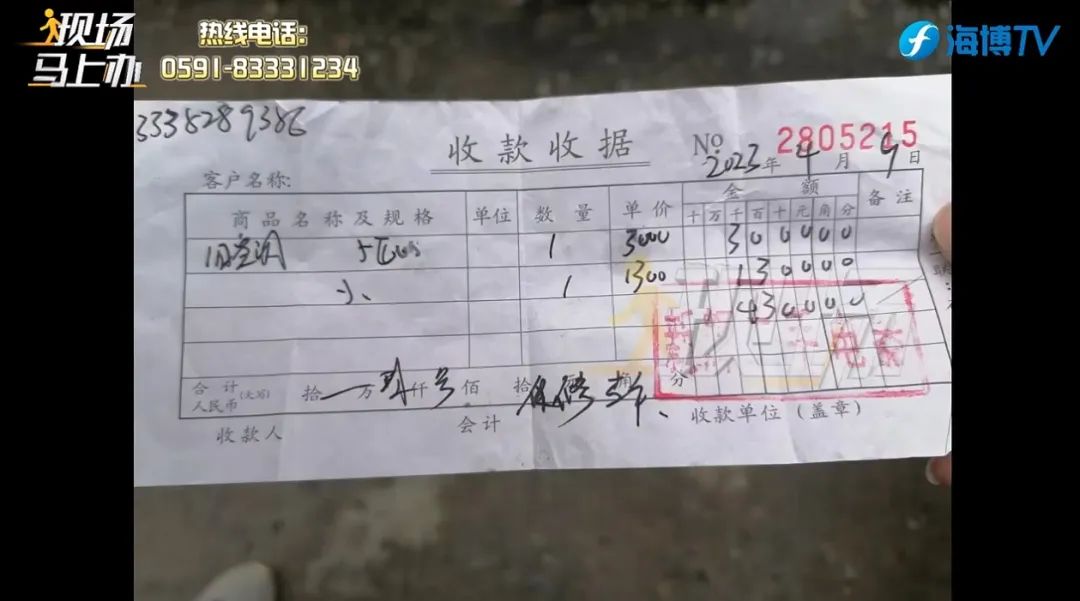 现场
马上办
热线电话:
0591-83331234
海博TV
3338289386
收款收据
No 2805215
2023年4月9日
客户名称:
商品名称及规格 单位 数量 单价 金额 备注
十万千百十元角分
旧空调 1 3000 300000
小 1 1300 130000
430000
合计人民币(大写) 拾 万 仟 佰 拾 角 分
保修半年
收款人 会计 收款单位(盖章)